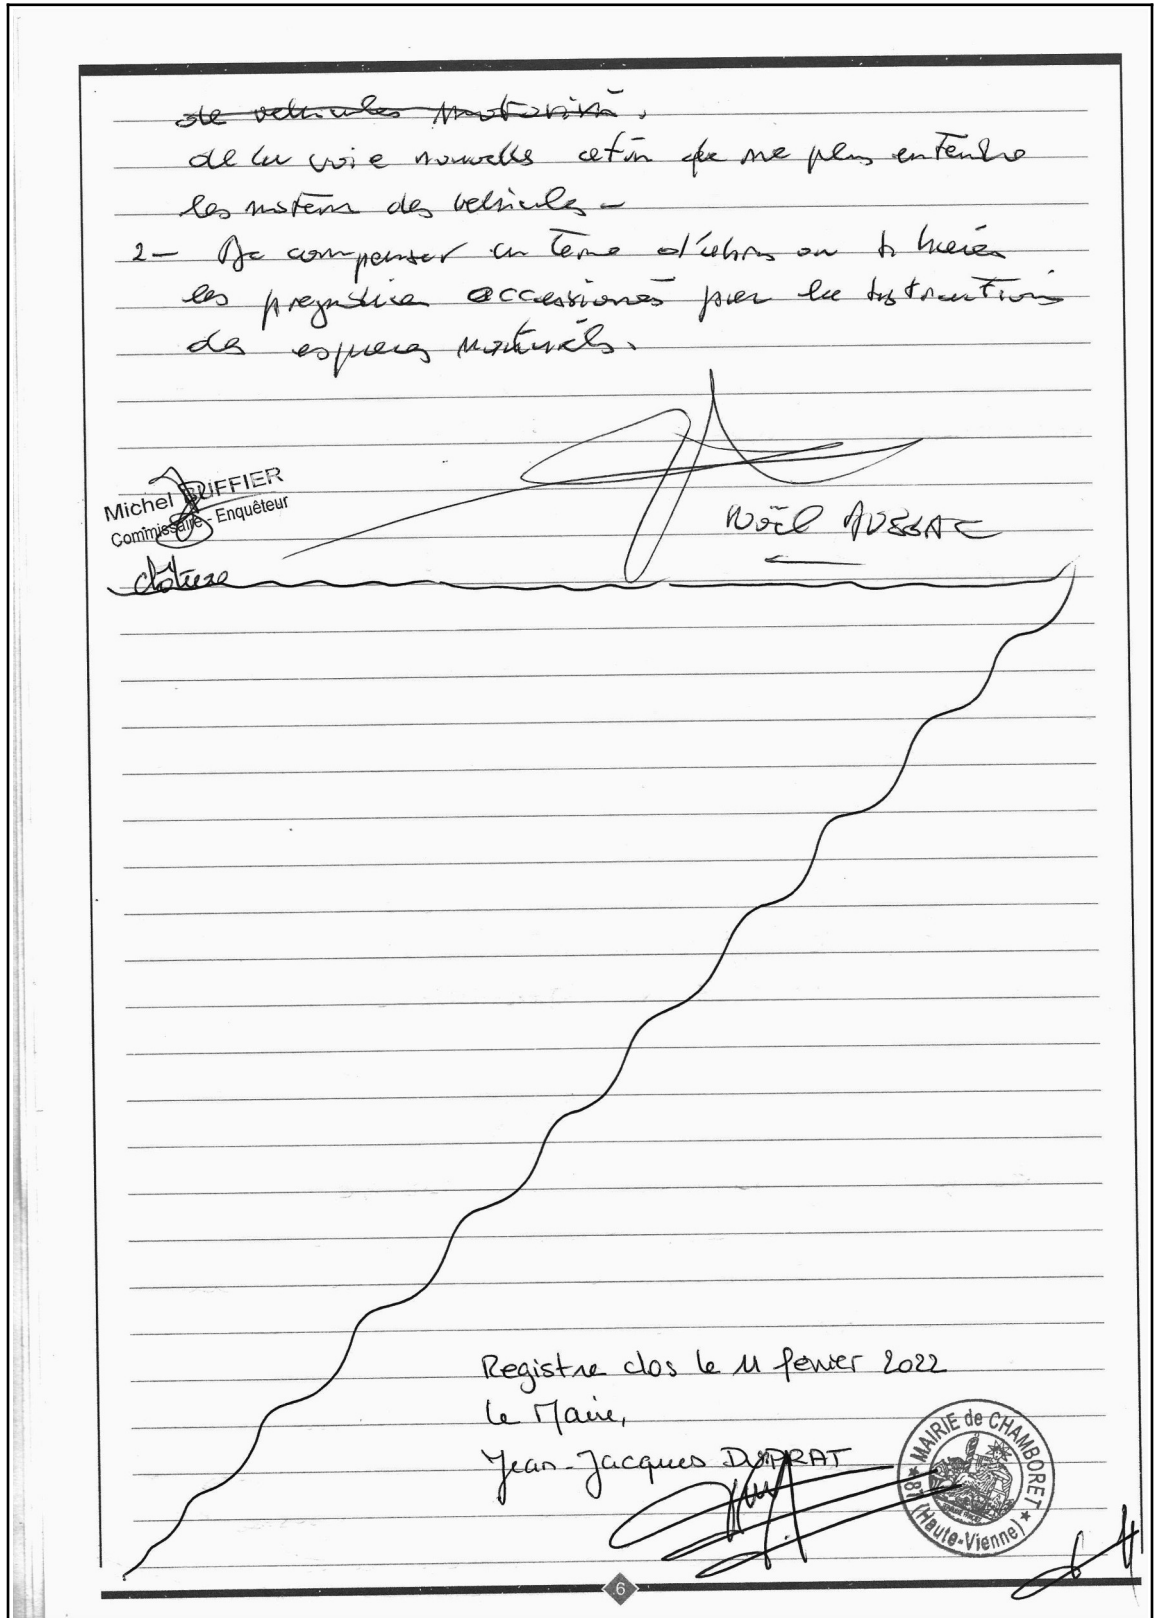 de vehicules motorisés.
de la voie nouvelle afin de ne plus entendre
les moteurs des vehicules -
2 - De compenser en terme d'arbres ou
les prejudices occasionnés par les destructions
des espaces naturels.
Michel BUFFIER
Commissaire - Enquêteur
Noël AUSSAC
clôture
Registre clos le 11 février 2022
le Maire,
Jean-Jacques DUPRAT
MAIRIE de CHAMBORET
87 (Haute-Vienne)
6